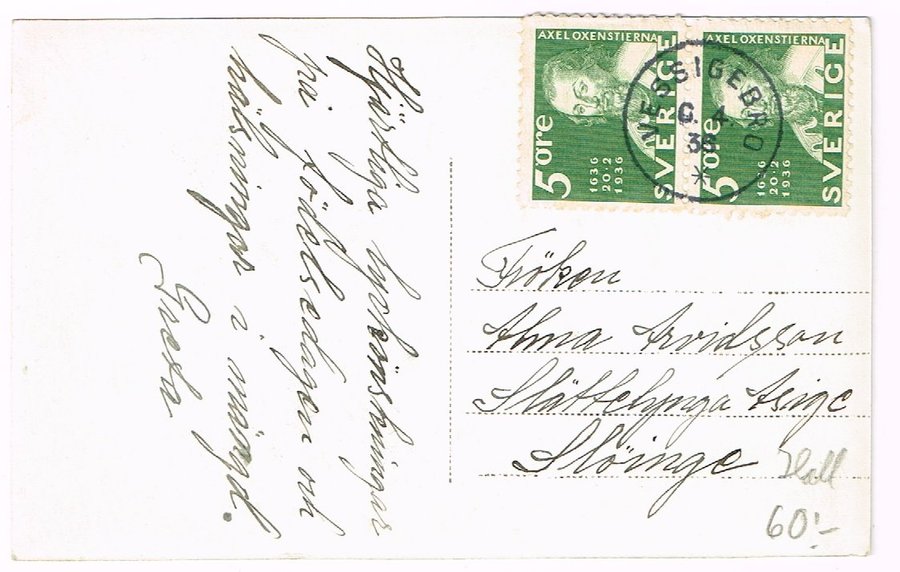 Hjärtliga lyckönskningar
på födelsedagen och
hälsningar i mängd.
Greta
AXEL OXENSTIERNA
SVERIGE
5 ÖRE
1636
20.2
1936
AXEL OXENSTIERNA
SVERIGE
5 ÖRE
1636
20.2
1936
VESSIGEBRO
4.
36
*
Fröken
Alma Arvidsson
Slättelynga Asige
Slöinge
Hall
60:-